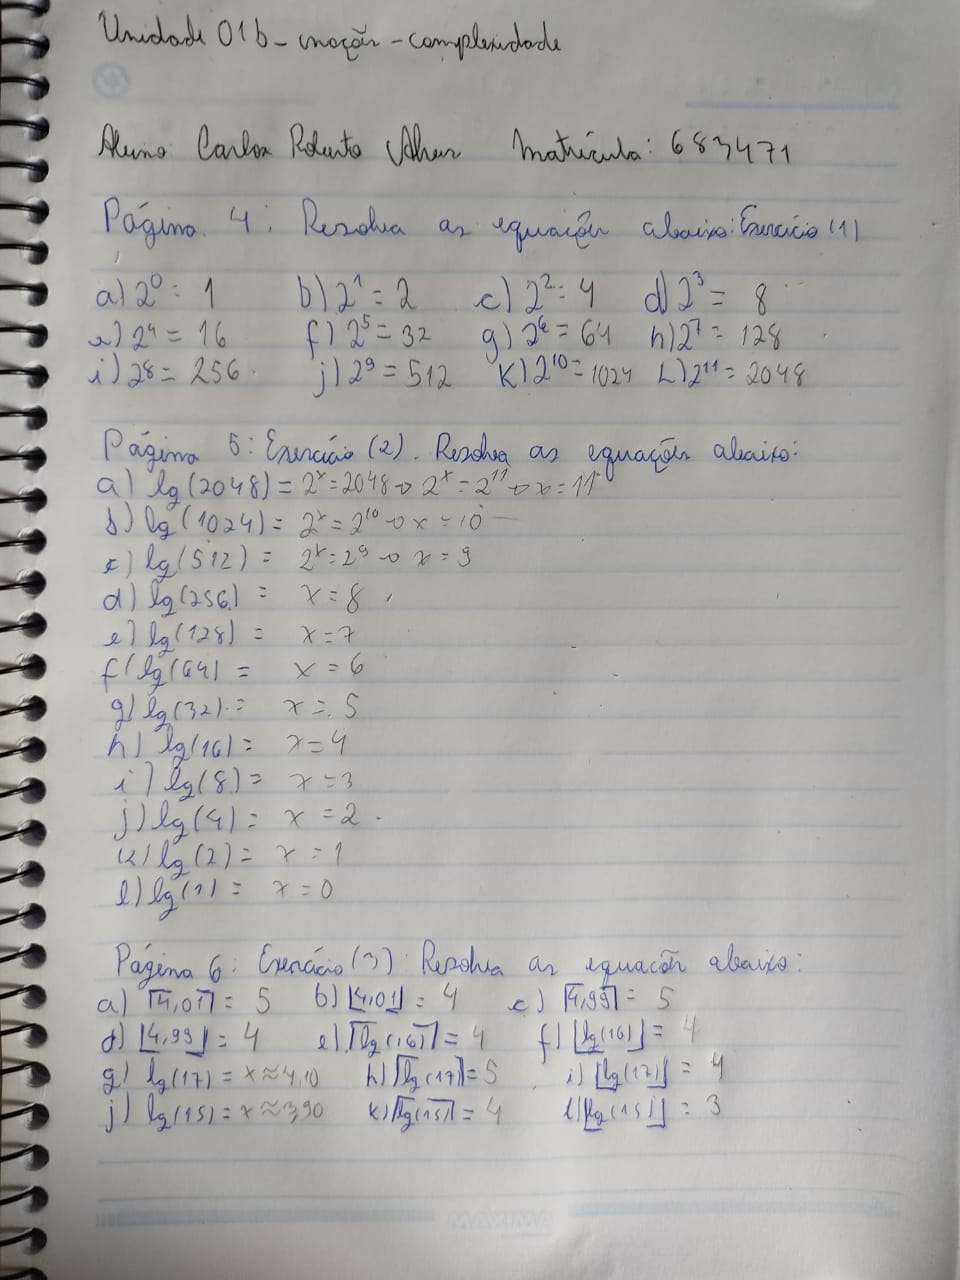 Unidade 01b - noção - complexidade
Aluno: Carlos Roberto Matrícula: 683471
Página 4: Resolva as equações abaixo: Exercício (1)
a) 2⁰ = 1 b) 2¹ = 2 c) 2² = 4 d) 2³ = 8
e) 2⁴ = 16 f) 2⁵ = 32 g) 2⁶ = 64 h) 2⁷ = 128
i) 2⁸ = 256 j) 2⁹ = 512 K) 2¹⁰ = 1024 L) 2¹¹ = 2048
Página 5: Exercício (2). Resolva as equações abaixo:
a) lg(2048) = 2ˣ = 2048 → 2ˣ = 2¹¹ → x = 11
b) lg(1024) = 2ˣ = 2¹⁰ → x = 10
c) lg(512) = 2ˣ = 2⁹ → x = 9
d) lg(256) = x = 8
e) lg(128) = x = 7
f) lg(64) = x = 6
g) lg(32) = x = 5
h) lg(16) = x = 4
i) lg(8) = x = 3
j) lg(4) = x = 2
K) lg(2) = x = 1
l) lg(1) = x = 0
Página 6: Exercício (3): Resolva as equações abaixo:
a) ⌈4,01⌉ = 5 b) ⌊4,01⌋ = 4 c) ⌈4,99⌉ = 5
d) ⌊4,99⌋ = 4 e) ⌈lg(16)⌉ = 4 f) ⌊lg(16)⌋ = 4
g) lg(17) = x ≈ 4,10 h) ⌈lg(17)⌉ = 5 i) ⌊lg(17)⌋ = 4
j) lg(15) = x ≈ 3,90 K) ⌈lg(15)⌉ = 4 l) ⌊lg(15)⌋ = 3